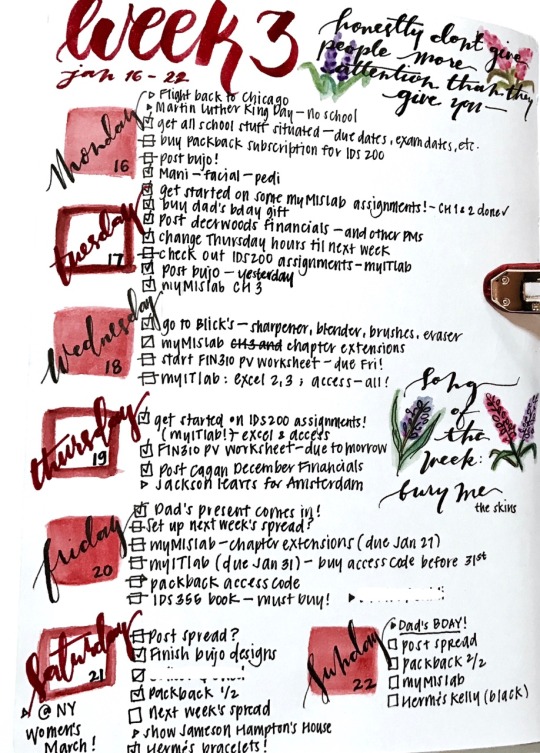 week 3
jan 16 - 22
honestly don't give
people more
attention than they
give you—
Monday
16
Flight back to Chicago
Martin Luther King Day — no school
get all school stuff situated — due dates, exam dates, etc.
buy packback subscription for IDS 200
post bujo!
Mani - facial - pedi
tuesday
17
get started on some myMISlab assignments! - CH 1 & 2 done ✓
buy dad's bday gift
Post deerwoods Financials — and other PMs
change Thursday hours til next week
check out IDS200 assignments — myITlab
post bujo — yesterday
myMISlab CH 3
Wednesday
18
go to Blick's — sharpener, blender, brushes, eraser
myMISlab CH3 and chapter extensions
start FIN310 PV worksheet — due Fri!
myITlab: excel 2, 3; access — all!
Song
of
the
week:
bury me
the skins
thursday
19
get started on IDS200 assignments!
(myITlab!) - excel & access
FIN310 PV worksheet — due tomorrow
Post Cagan December Financials
Jackson leaves for Amsterdam
friday
20
Dad's present comes in!
Set up next week's spread?
myMISlab — chapter extensions (due Jan 27)
myITlab (due Jan 31) — buy access code before 31st
packback access code
IDS 355 book — must buy!
Saturday
21
@ NY
Women's
March!
Post spread?
Finish bujo designs
Packback 1/2
next week's spread
show Jameson Hampton's House
Hermès bracelets!
Sunday
22
Dad's BDAY!
post spread
packback 2/2
myMISlab
Hermès Kelly (black)